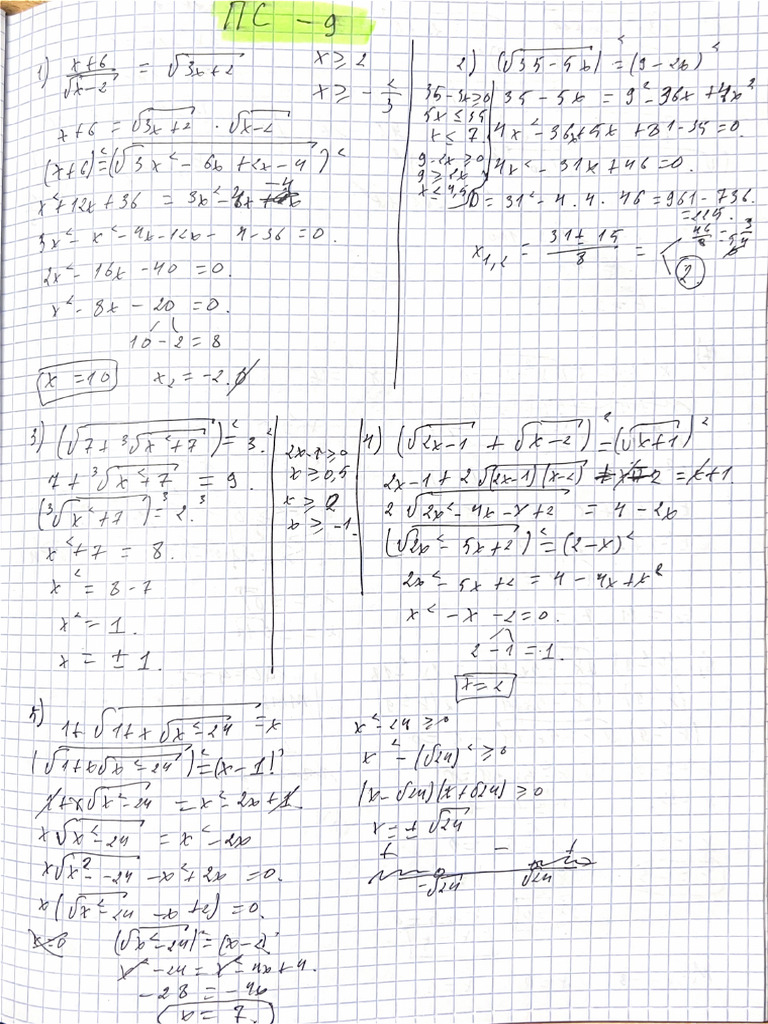 ПС - 9
1) (x+6)/√(x-2) = √(3x+2)
x ≥ 2
x ≥ -2/3
x+6 = √(3x+2) · √(x-2)
(x+6)² = (√(3x² - 6x + 2x - 4))²
x² + 12x + 36 = 3x² - 4x - 4
3x² - x² - 4x - 12x - 4 - 36 = 0.
2x² - 16x - 40 = 0.
x² - 8x - 20 = 0.
10 - 2 = 8
x = 10
x₂ = -2. ∅
2) (√(35-5x))² = (9-2x)²
35 - 5x ≥ 0
5x ≤ 35
x ≤ 7.
9-2x ≥ 0
9 ≥ 2x
x ≤ 4,5
35 - 5x = 9² - 36x + 4x²
4x² - 36x + 5x + 81 - 35 = 0.
4x² - 31x + 46 = 0.
D = 31² - 4 · 4 · 46 = 961 - 736
= 225.
x₁,₂ = (31 ± 15)/8 =
46/8 = 5 3/4 ∅
2.
3) (√(7 + ³√(x²+7)))² = 3²
7 + ³√(x²+7) = 9.
(³√(x²+7))³ = 2³
x² + 7 = 8.
x² = 8 - 7
x² = 1.
x = ± 1.
2x-1 ≥ 0
x ≥ 0,5
x ≥ 2
x ≥ -1.
4) (√(2x-1) + √(x-2))² = (√(x+1))²
2x-1 + 2√((2x-1)(x-2)) + x - 2 = x + 1.
2√(2x² - 4x - x + 2) = 4 - 2x
(√(2x² - 5x + 2))² = (2-x)²
2x² - 5x + 2 = 4 - 4x + x²
x² - x - 2 = 0.
2 - 1 = 1.
x = 2
5) 1 + √(1 + x√(x²-24)) = x
(√(1+x√(x²-24)))² = (x-1)²
1 + x√(x²-24) = x² - 2x + 1.
x√(x²-24) = x² - 2x
x√(x²-24) - x² + 2x = 0.
x(√(x²-24) - x + 2) = 0.
x=0
(√(x²-24))² = (x-2)²
x² - 24 = x² - 4x + 4.
-28 = -4x
x = 7.
x² - 24 ≥ 0
x² - (√24)² ≥ 0
(x-√24)(x+√24) ≥ 0
x = ± √24
+ - +
-√24 √24